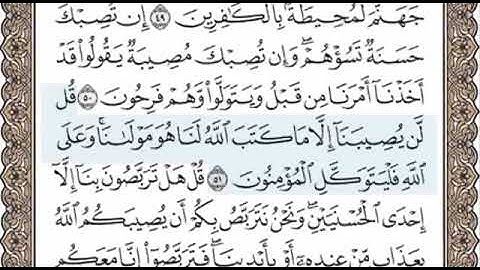 جَهَنَّمَ لَمُحِيطَةٌۢ بِٱلْكَٰفِرِينَ ٤٩ إِن تُصِبْكَ
حَسَنَةٌ تَسُؤْهُمْ ۖ وَإِن تُصِبْكَ مُصِيبَةٌ يَقُولُوا۟ قَدْ
أَخَذْنَآ أَمْرَنَا مِن قَبْلُ وَيَتَوَلَّوا۟ وَّهُمْ فَرِحُونَ ٥٠ قُل
لَّن يُصِيبَنَآ إِلَّا مَا كَتَبَ ٱللَّهُ لَنَا هُوَ مَوْلَىٰنَا ۚ وَعَلَى
ٱللَّهِ فَلْيَتَوَكَّلِ ٱلْمُؤْمِنُونَ ٥١ قُلْ هَلْ تَرَبَّصُونَ بِنَآ إِلَّآ
إِحْدَى ٱلْحُسْنَيَيْنِ ۖ وَنَحْنُ نَتَرَبَّصُ بِكُمْ أَن يُصِيبَكُمُ ٱللَّهُ
بِعَذَابٍ مِّنْ عِندِهِۦٓ أَوْ بِأَيْدِينَا ۖ فَتَرَبَّصُوٓا۟ إِنَّا مَعَكُم